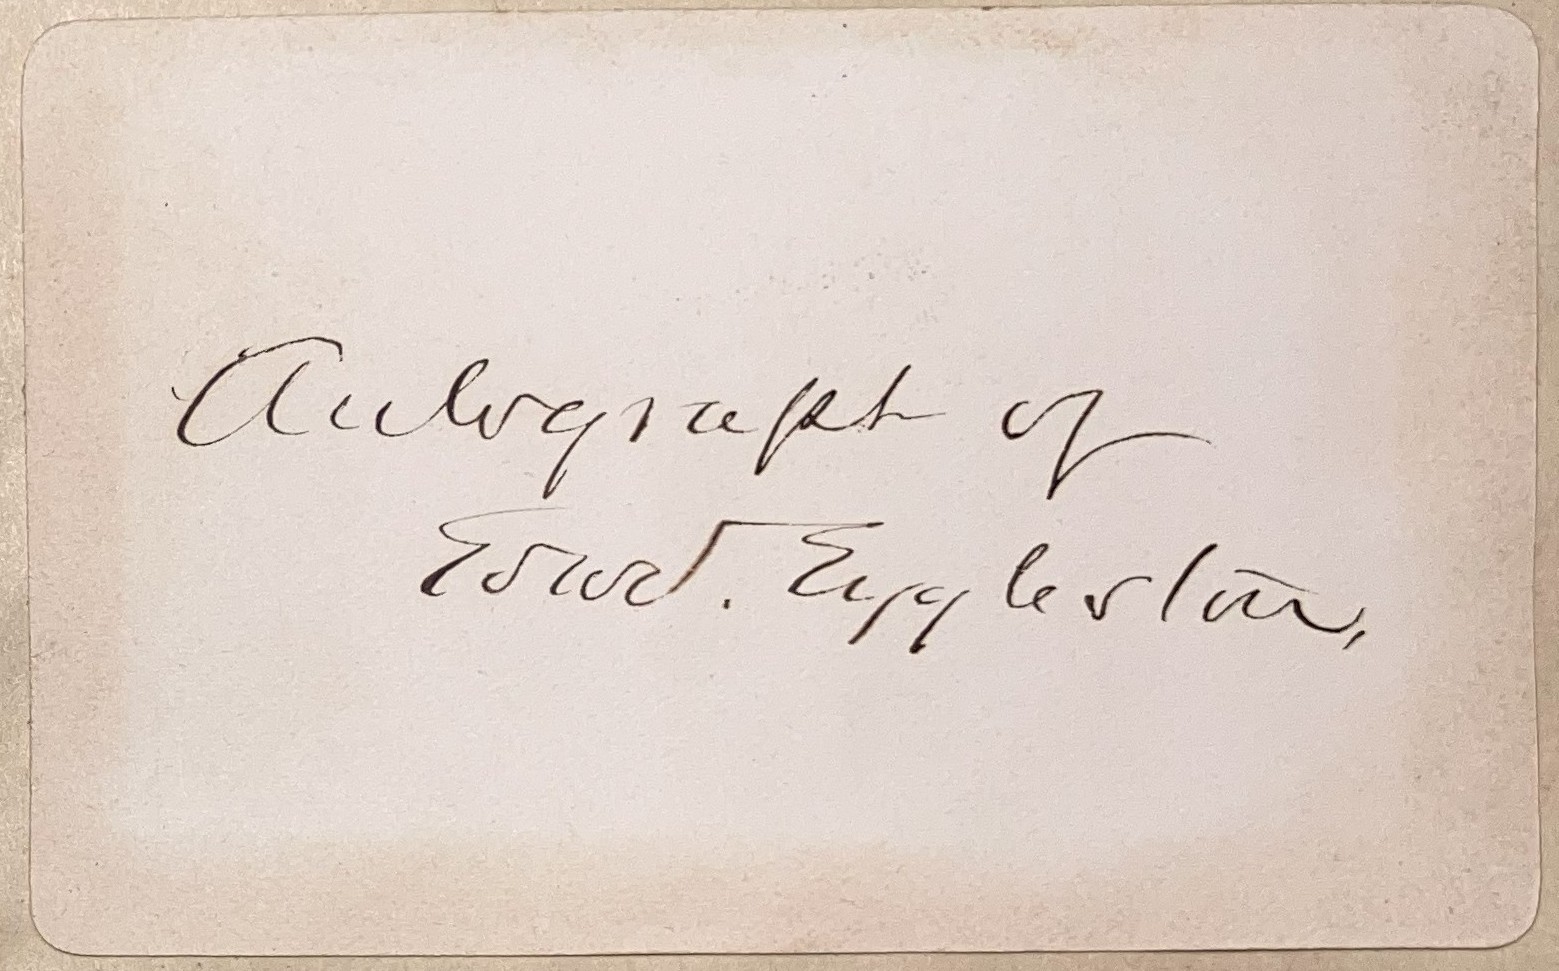 Autograph of
Edward. Eggleston,